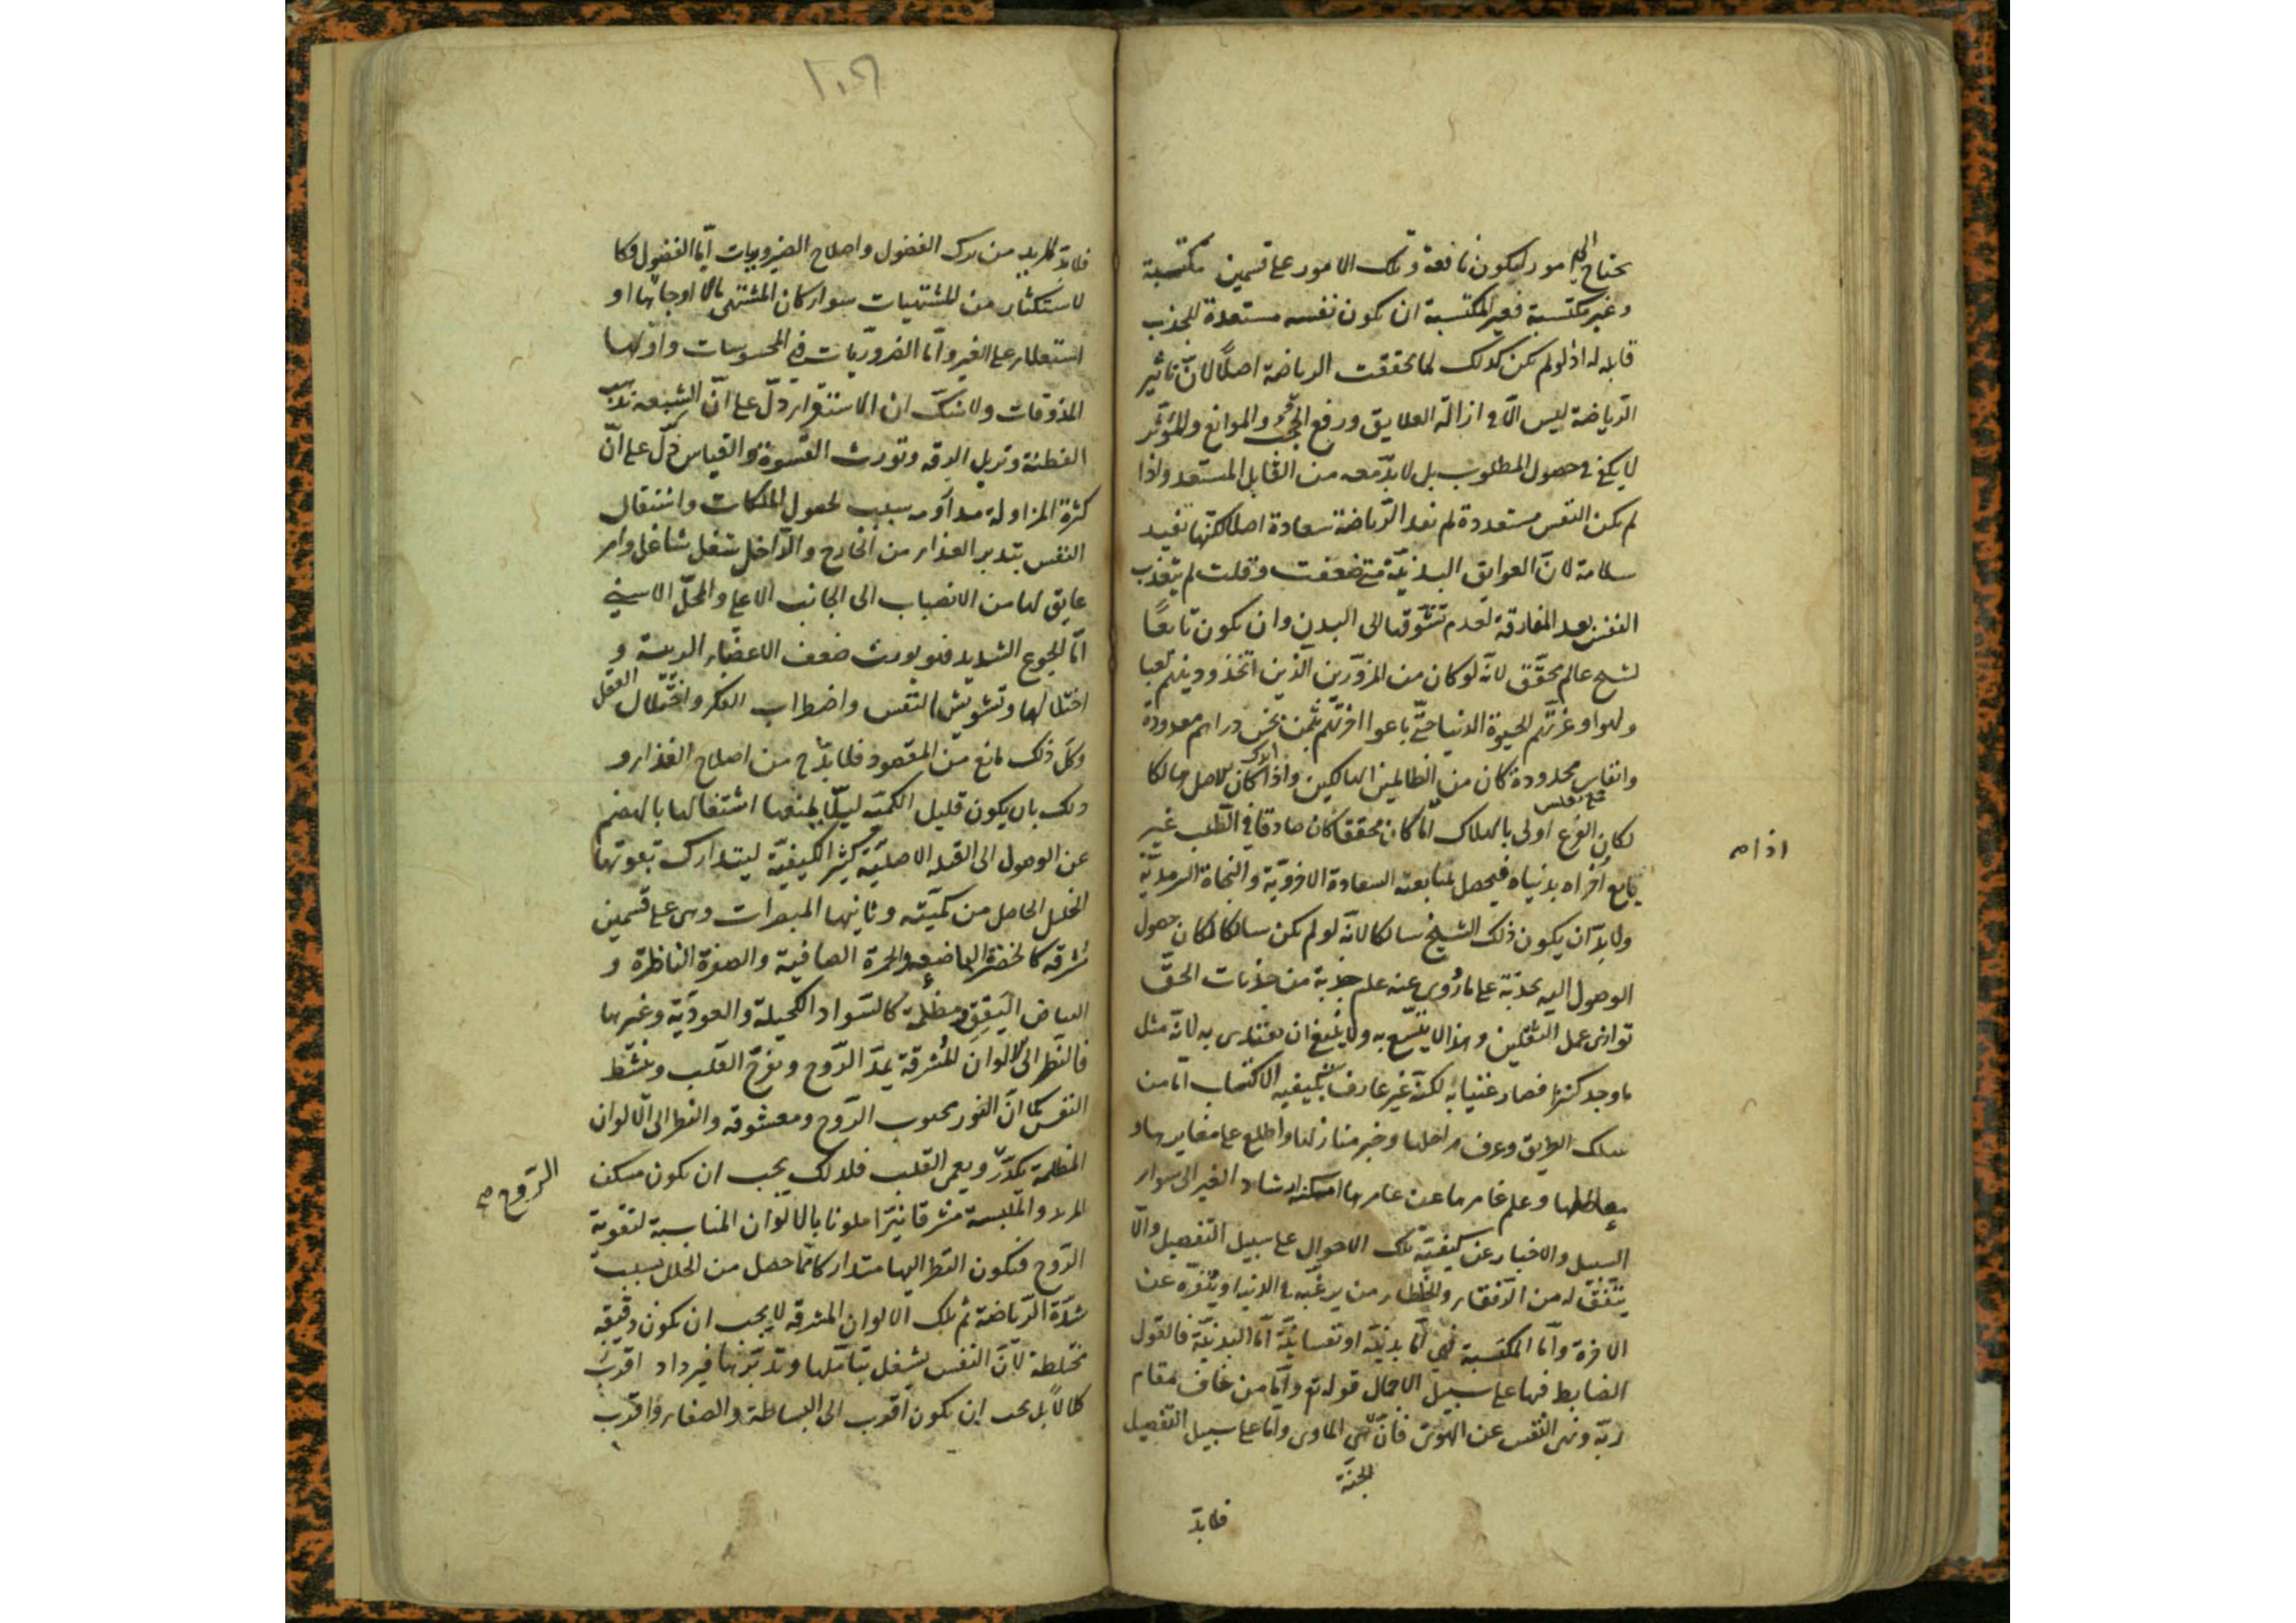 يحتاج الى امور ليكون نافعة وتلك الامور على قسمين مكتسبة
وغير مكتسبة فغير المكتسبة ان يكون نفسه مستعدة للجذب
قابله له اذ لو لم يكن كذلك لما تحققت الرياضة اصلاً لانّ تاثير
الرّياضة ليس الّا فى ازالة العلايق ورفع الحجب والموانع والمؤثّر
لا يكفى فى حصول المطلوب بل لا بدّ معه من القابل المستعد واذا
لم يكن النفس مستعدة لم تفد الرّياضة سعادة اصلا لكنّها تفيد
سلامة لانّ العوايق البدنيّة متى ضعفت وقلت لم يتعذب
النفس بعد المفارقة لعدم تشوّقها الى البدن وان يكون تابعًا
لشيخ عالم محقّق لانّه لو كان من المزوّرين الّذين اتخذوا دينهم لعبا
ولهوا وغرّتهم الحيوة الدنيا حتّى باعوا اخرتهم بثمن بخس دراهم معدودة
وانفاس محدودة كان من الظالمين الهالكين واذا كان الاصل هالكا
لكان الفرع اولى بالهلاك امّا كان محققا كان صادقا فى الطّلب غير
اذا م
بايع أخراه بدنياه فيحصل بمتابعته السعادة الاخرويّة والنجاة السرمديّة
ولا بدّ ان يكون ذلك الشيخ سالكا لانّه لو لم يكن سالكا لكان حصول
الوصول اليه بجذبة على ما رُوى عنه علم جذبة من جذبات الحقّ
توازى عمل الثقلين وهذا لا يتّسع به ولا ينبغى ان يقتدى به لانّه مثل
ما وجد كنزا فصار غنيا به لكنّه غير عارف بكيفيه الاكتساب امّا من
سلك الطريق وعرف مراحلها وخبر منازلها واطلع على مغايرها و
وعلم غامرها عن عامرها امكنه ارشاد الغير الى سواء
السبيل والاخبار عن كيفيّة تلك الاحوال على سبيل التفصيل والّا
يتّفق له من الرّفقاء والخلطاء من يرغّبه فى الدنيا وينفّره عن
الاخرة وامّا المكتسبة فهى امّا بدنيّة او نفسانيّة امّا البدنيّة فالقول
الضابط فيها على سبيل الاجمال قوله تع وامّا من خاف مقام
ربّه ونهى النفس عن الهوى فانّ هى الماوى وامّا على سبيل التفصيل
الجنّة
فلا بدّ
١٠٩
فلا بدّ للمريد من ترك الفضول واصلاح الضروريات امّا الفضول فكا
لاستكثار من المشتهيات سواء كان المشتهى مالا او جاها او
استعلاء على الغير وامّا الضروريّات فى المحسوسات واوّلها
المذوقات ولا شكّ ان الاستقراء دلّ على انّ الشبع
الفطنة وتزيل الرقه وتورث القسوة والقياس دلّ على انّ
كثرة المزاولة سبب لحصول الملكات واشتغال
النفس بتدبير الغذاء من الخارج والدّاخل شغل شاغل وامر
عايق لها من الانصباب الى الجانب الاعلى والمحلّ الاسنى
امّا الجوع الشديد فهو يورث ضعف الاعضاء الرئيسة و
اختلالها وتشويش النفس واضطراب الفكر واختلال العقل
وكلّ ذلك مانع من المقصود فلا بدّ من اصلاح الغذاء و
ذلك بان يكون قليل الكميّة ليلّا يمنعها اشتغالها بالهضم
عن الوصول الى القبلة الاصليّة كثير الكيفيّة ليتدارك بقوتها
الخلل الحاصل من كميّته وثانيها المبصرات وهى على قسمين
مشرقه كالخضرة والحمرة الصافية والصفرة الناظرة و
البياض اليَقِق ومظلمة كالسّواد الكحيلة والعوديّة وغيرها
فالنّظر الى الالوان المُشرقة يمدّ الرّوح ويفرّح القلب وينشّط
النفس كما انّ النور محبوب الرّوح ومعشوقه والنظر الى الالوان
المظلمة يكدّر ويعمى القلب فلذلك يجب ان يكون مسكن
الرّوح صح
المريد والملبسة مشرقا نيّرا ملونا بالالوان المناسبة لتقوية
الرّوح فيكون النظر اليها متداركا لما حصل من الخلل بسبب
شدّة الرّياضة ثم تلك الالوان المشرقه لا يجب ان يكون دقيقة
مختلطة لانّ النفس يشغل بتأملها وتدبّرها فيزداد اقرب
كلالاً بل يجب ان يكون اقرب الى البساطة والصفاء واقرب